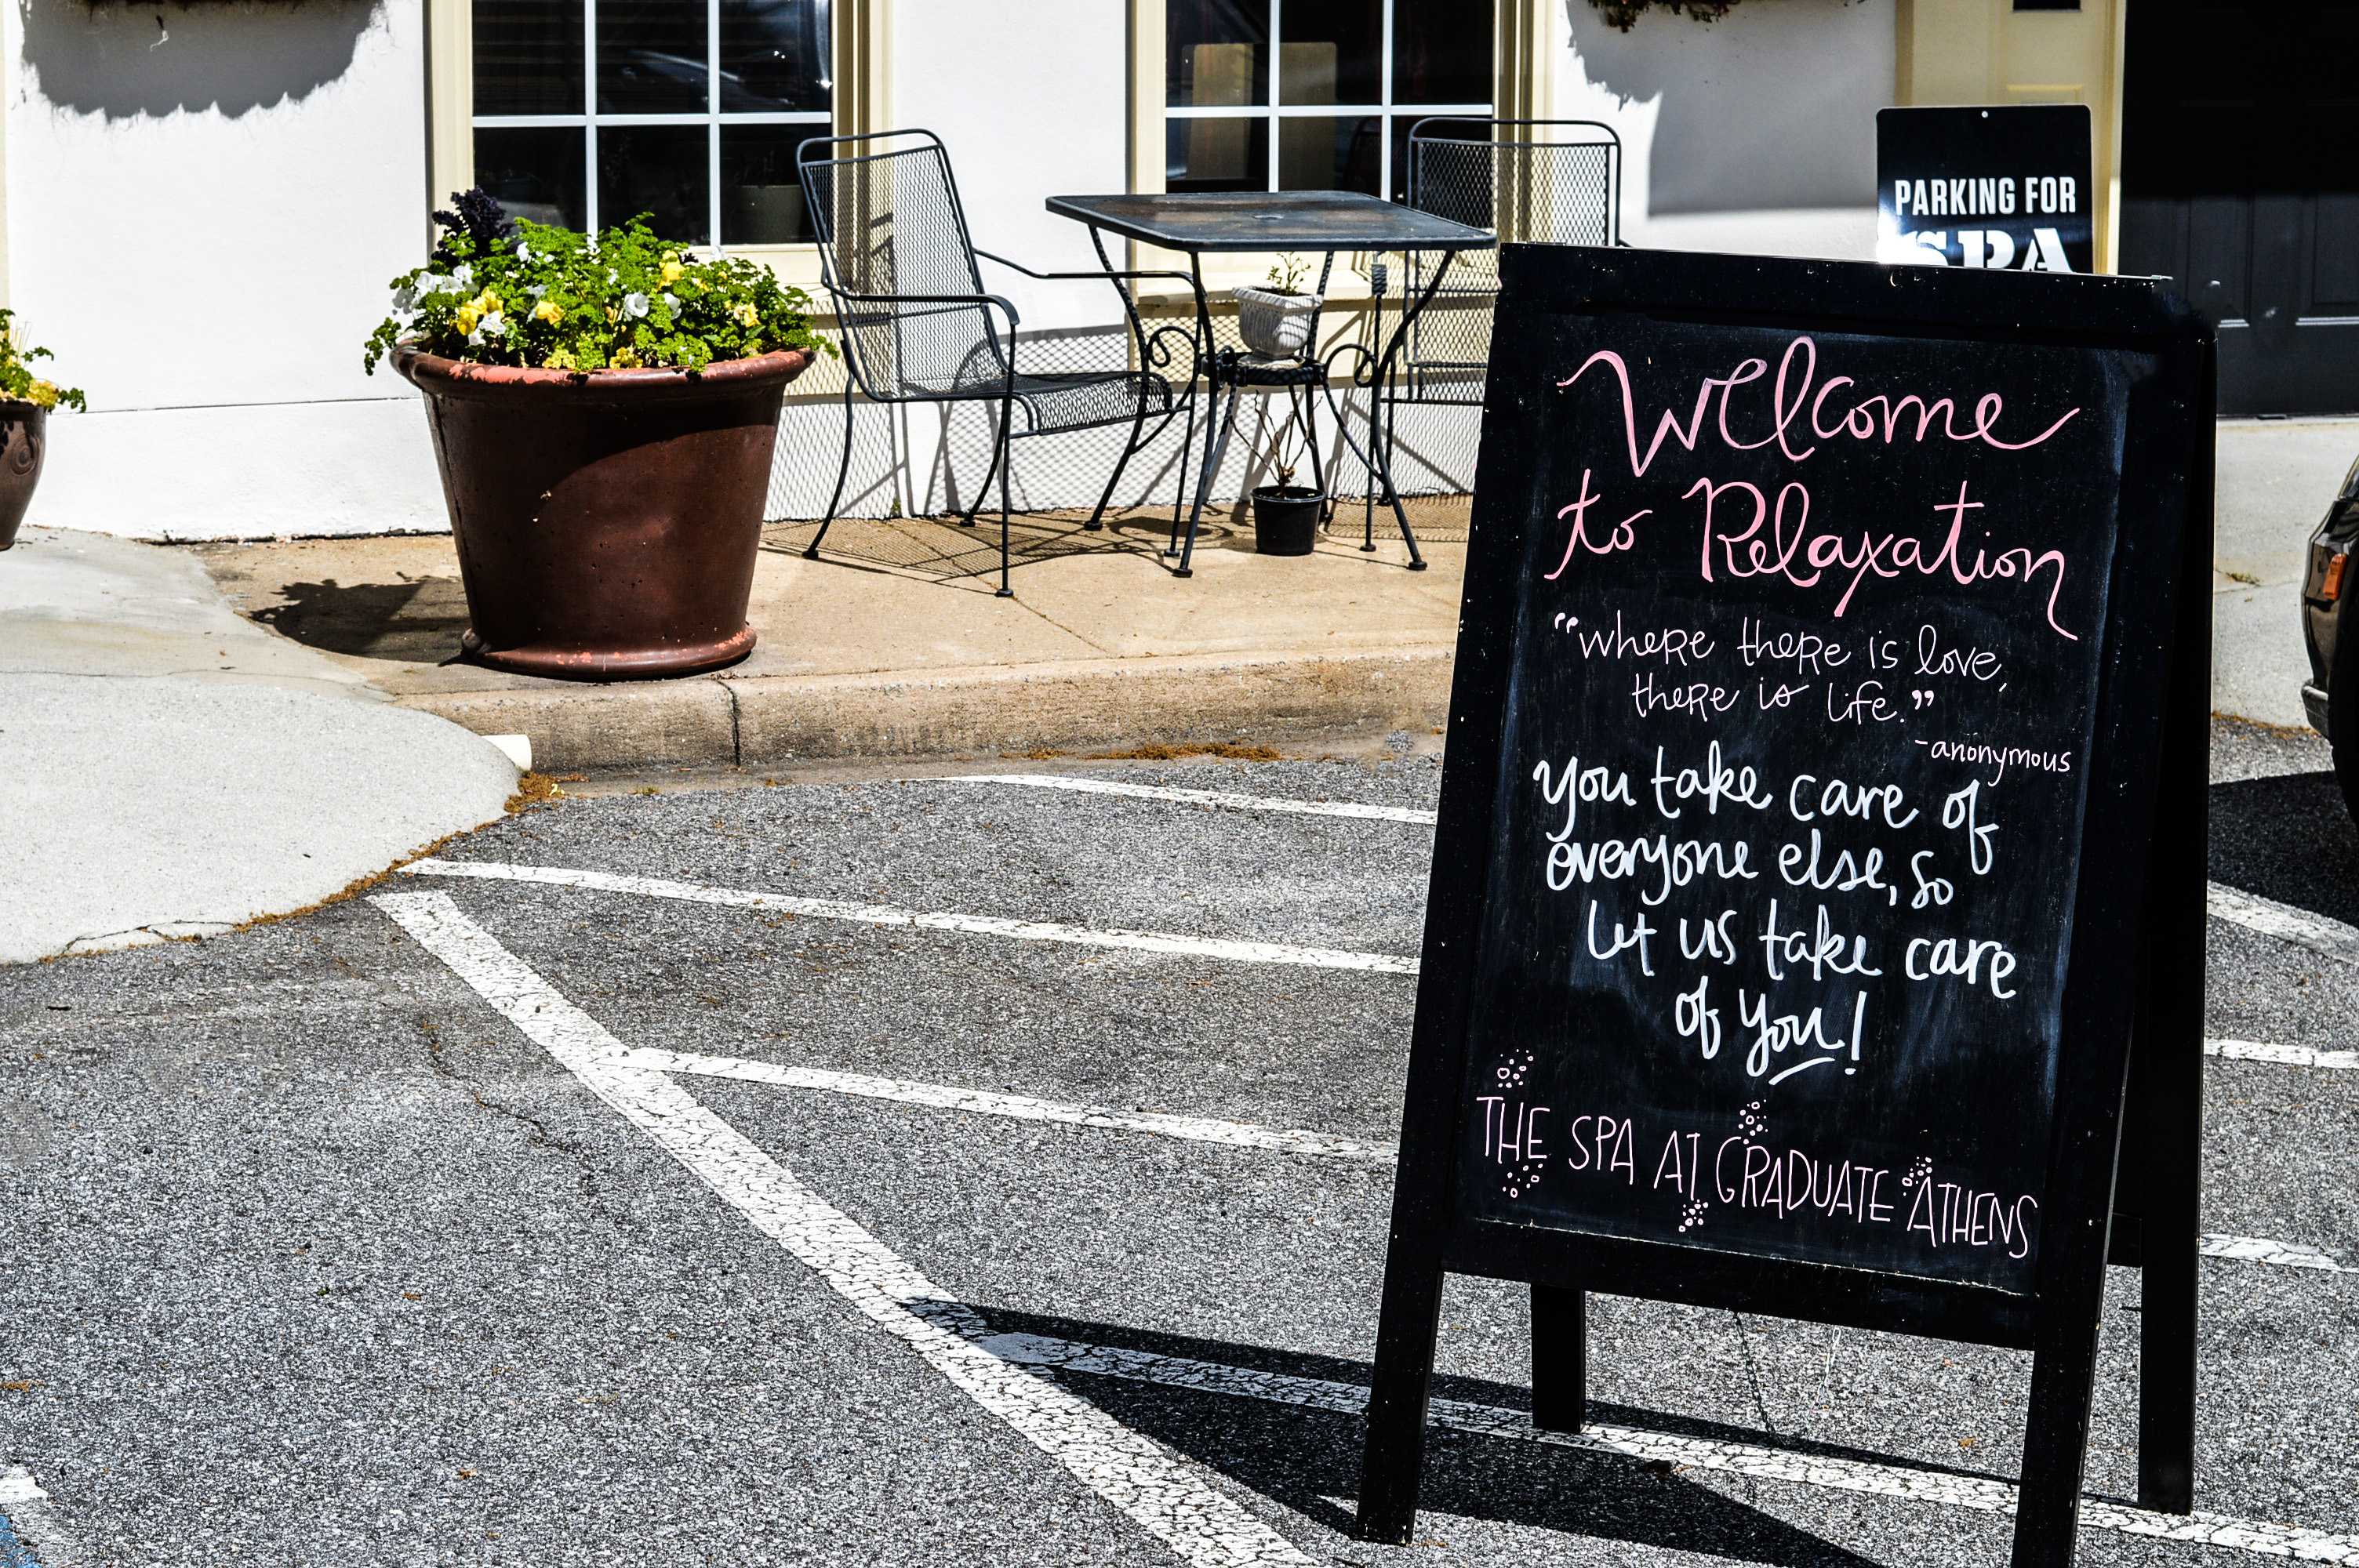 PARKING FOR
SPA
Welcome
to Relaxation
"where there is love,
there is life."
-anonymous
you take care of
everyone else, so
let us take care
of you!
THE SPA AT GRADUATE ATHENS